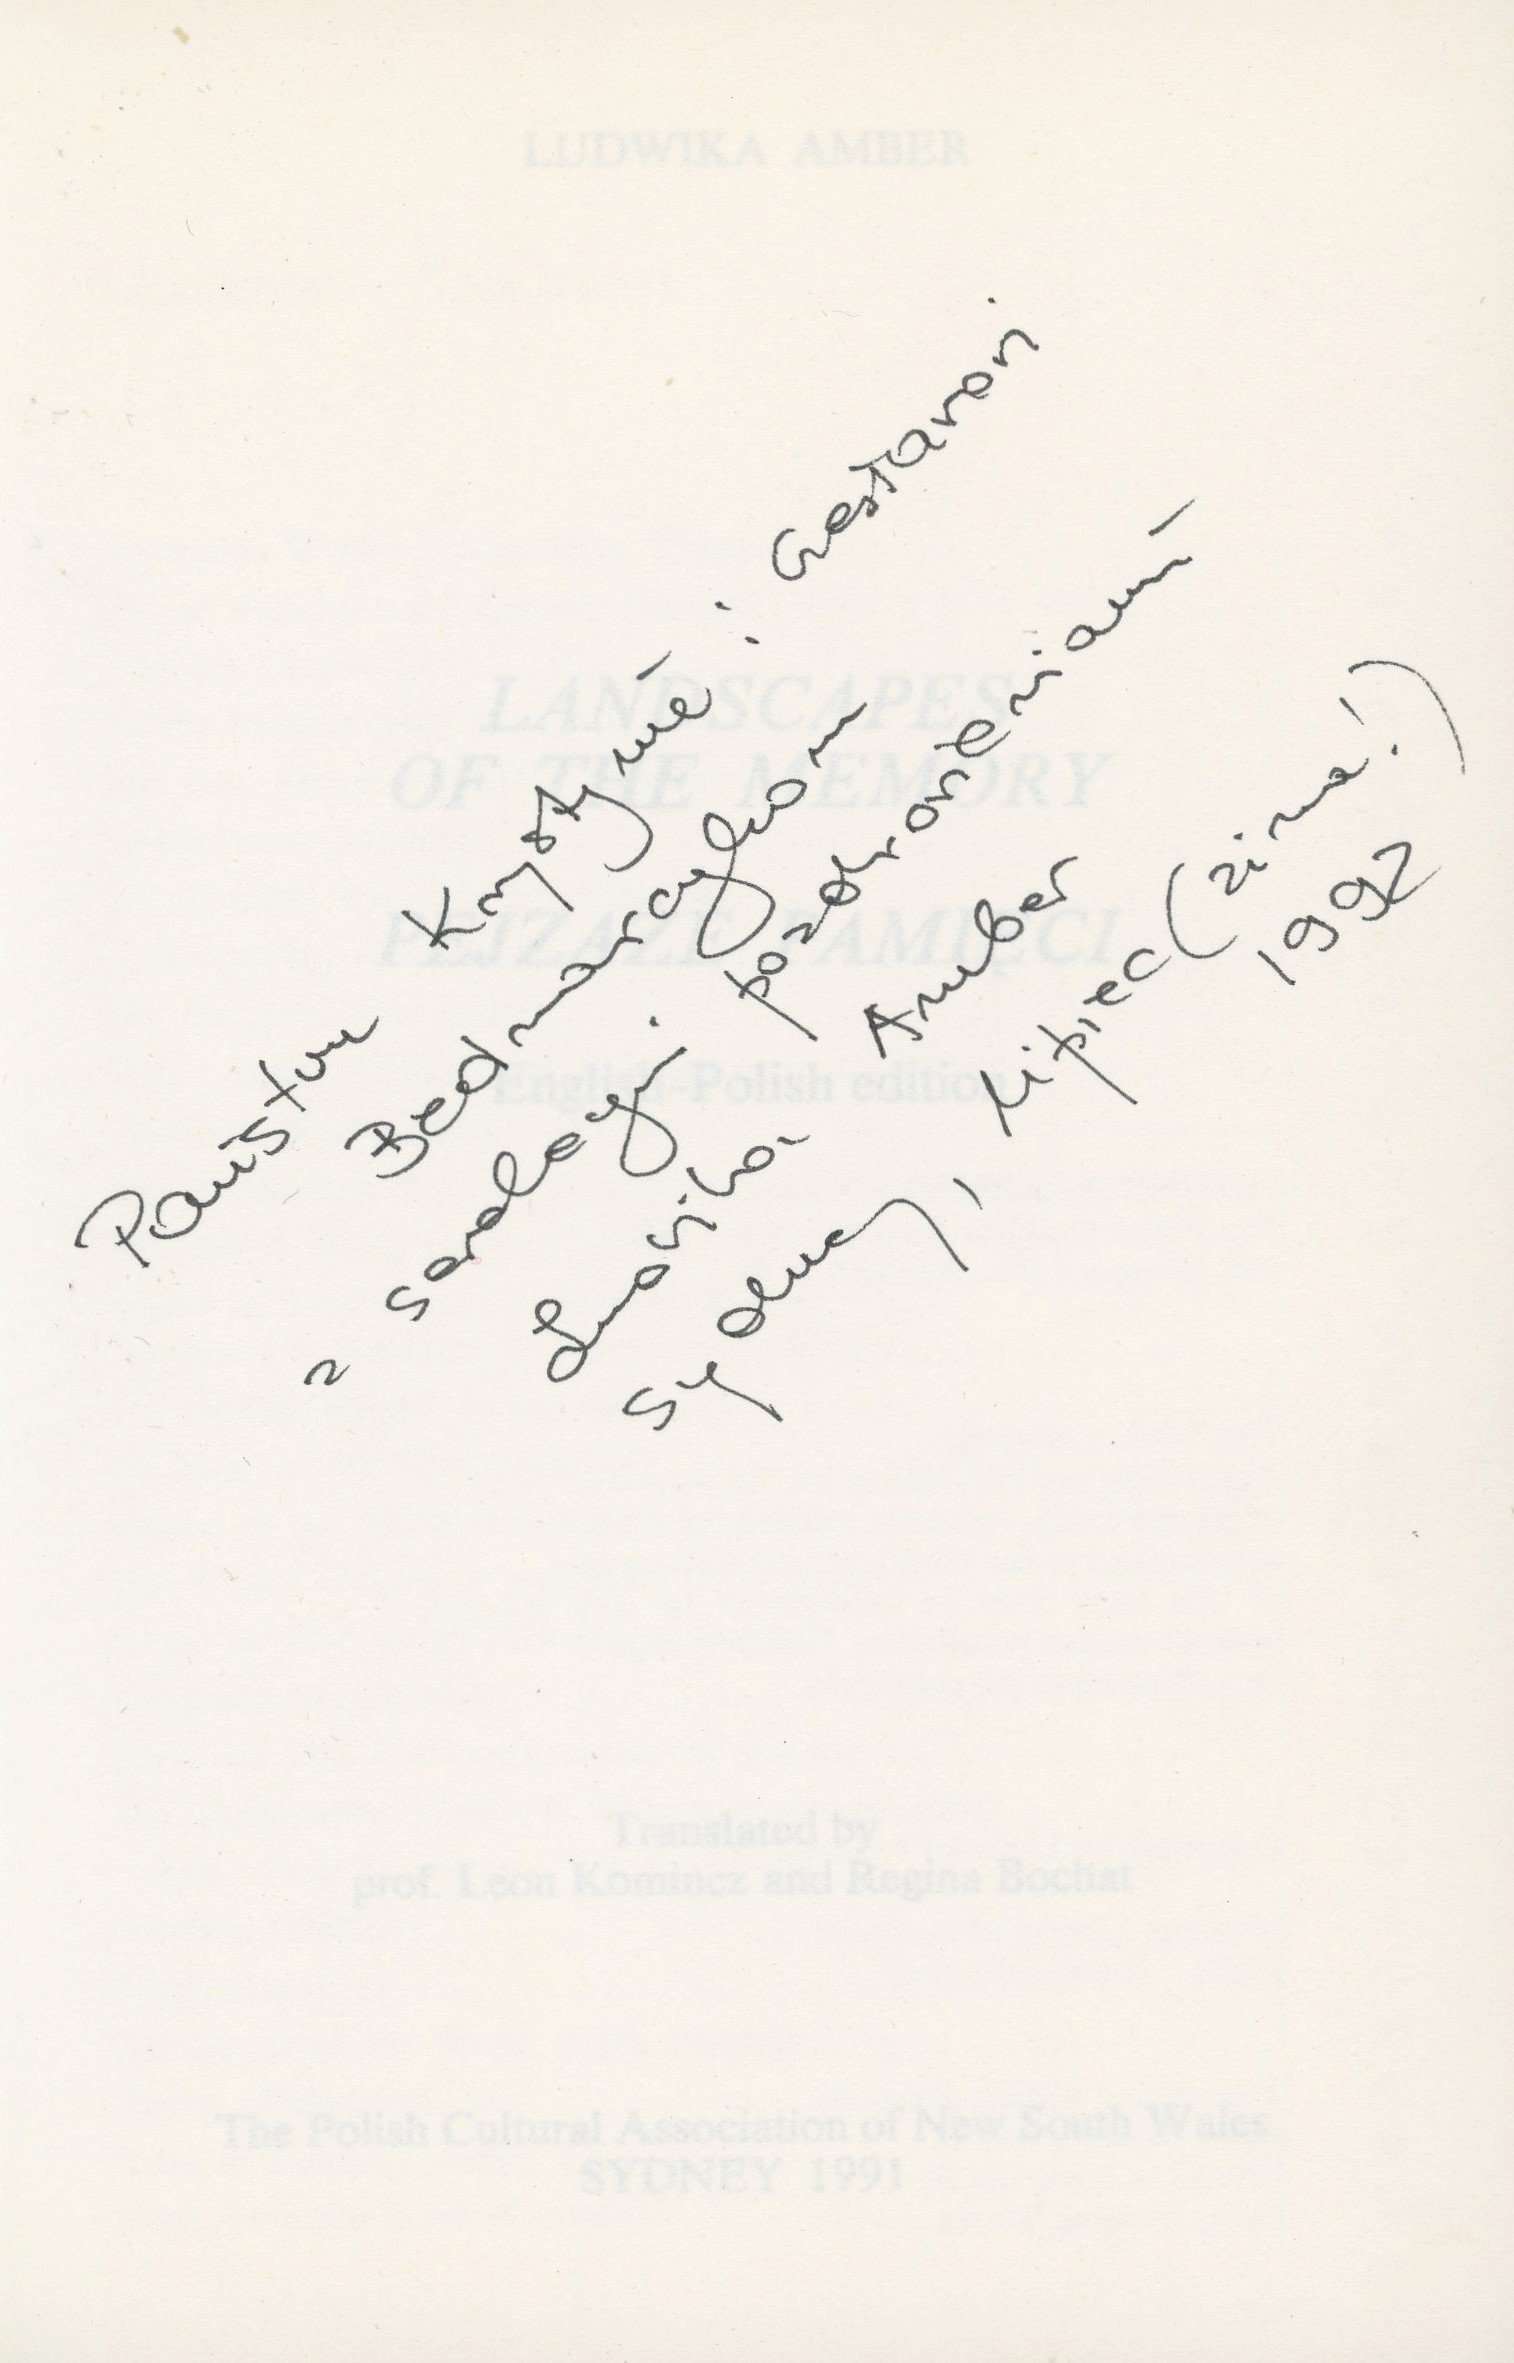 LUDWIKA AMBER
LANDSCAPES
OF THE MEMORY
PEJZAŻE PAMIĘCI
English-Polish edition
Translated by
prof. Leon Komincz and Regina Bochat
The Polish Cultural Association of New South Wales
SYDNEY 1991
Państwu Krystynie i Cezaremu
Bednarczykom
z serdecznymi pozdrowieniami
Ludwika Amber
Sydney, lipiec (zima!)
1992